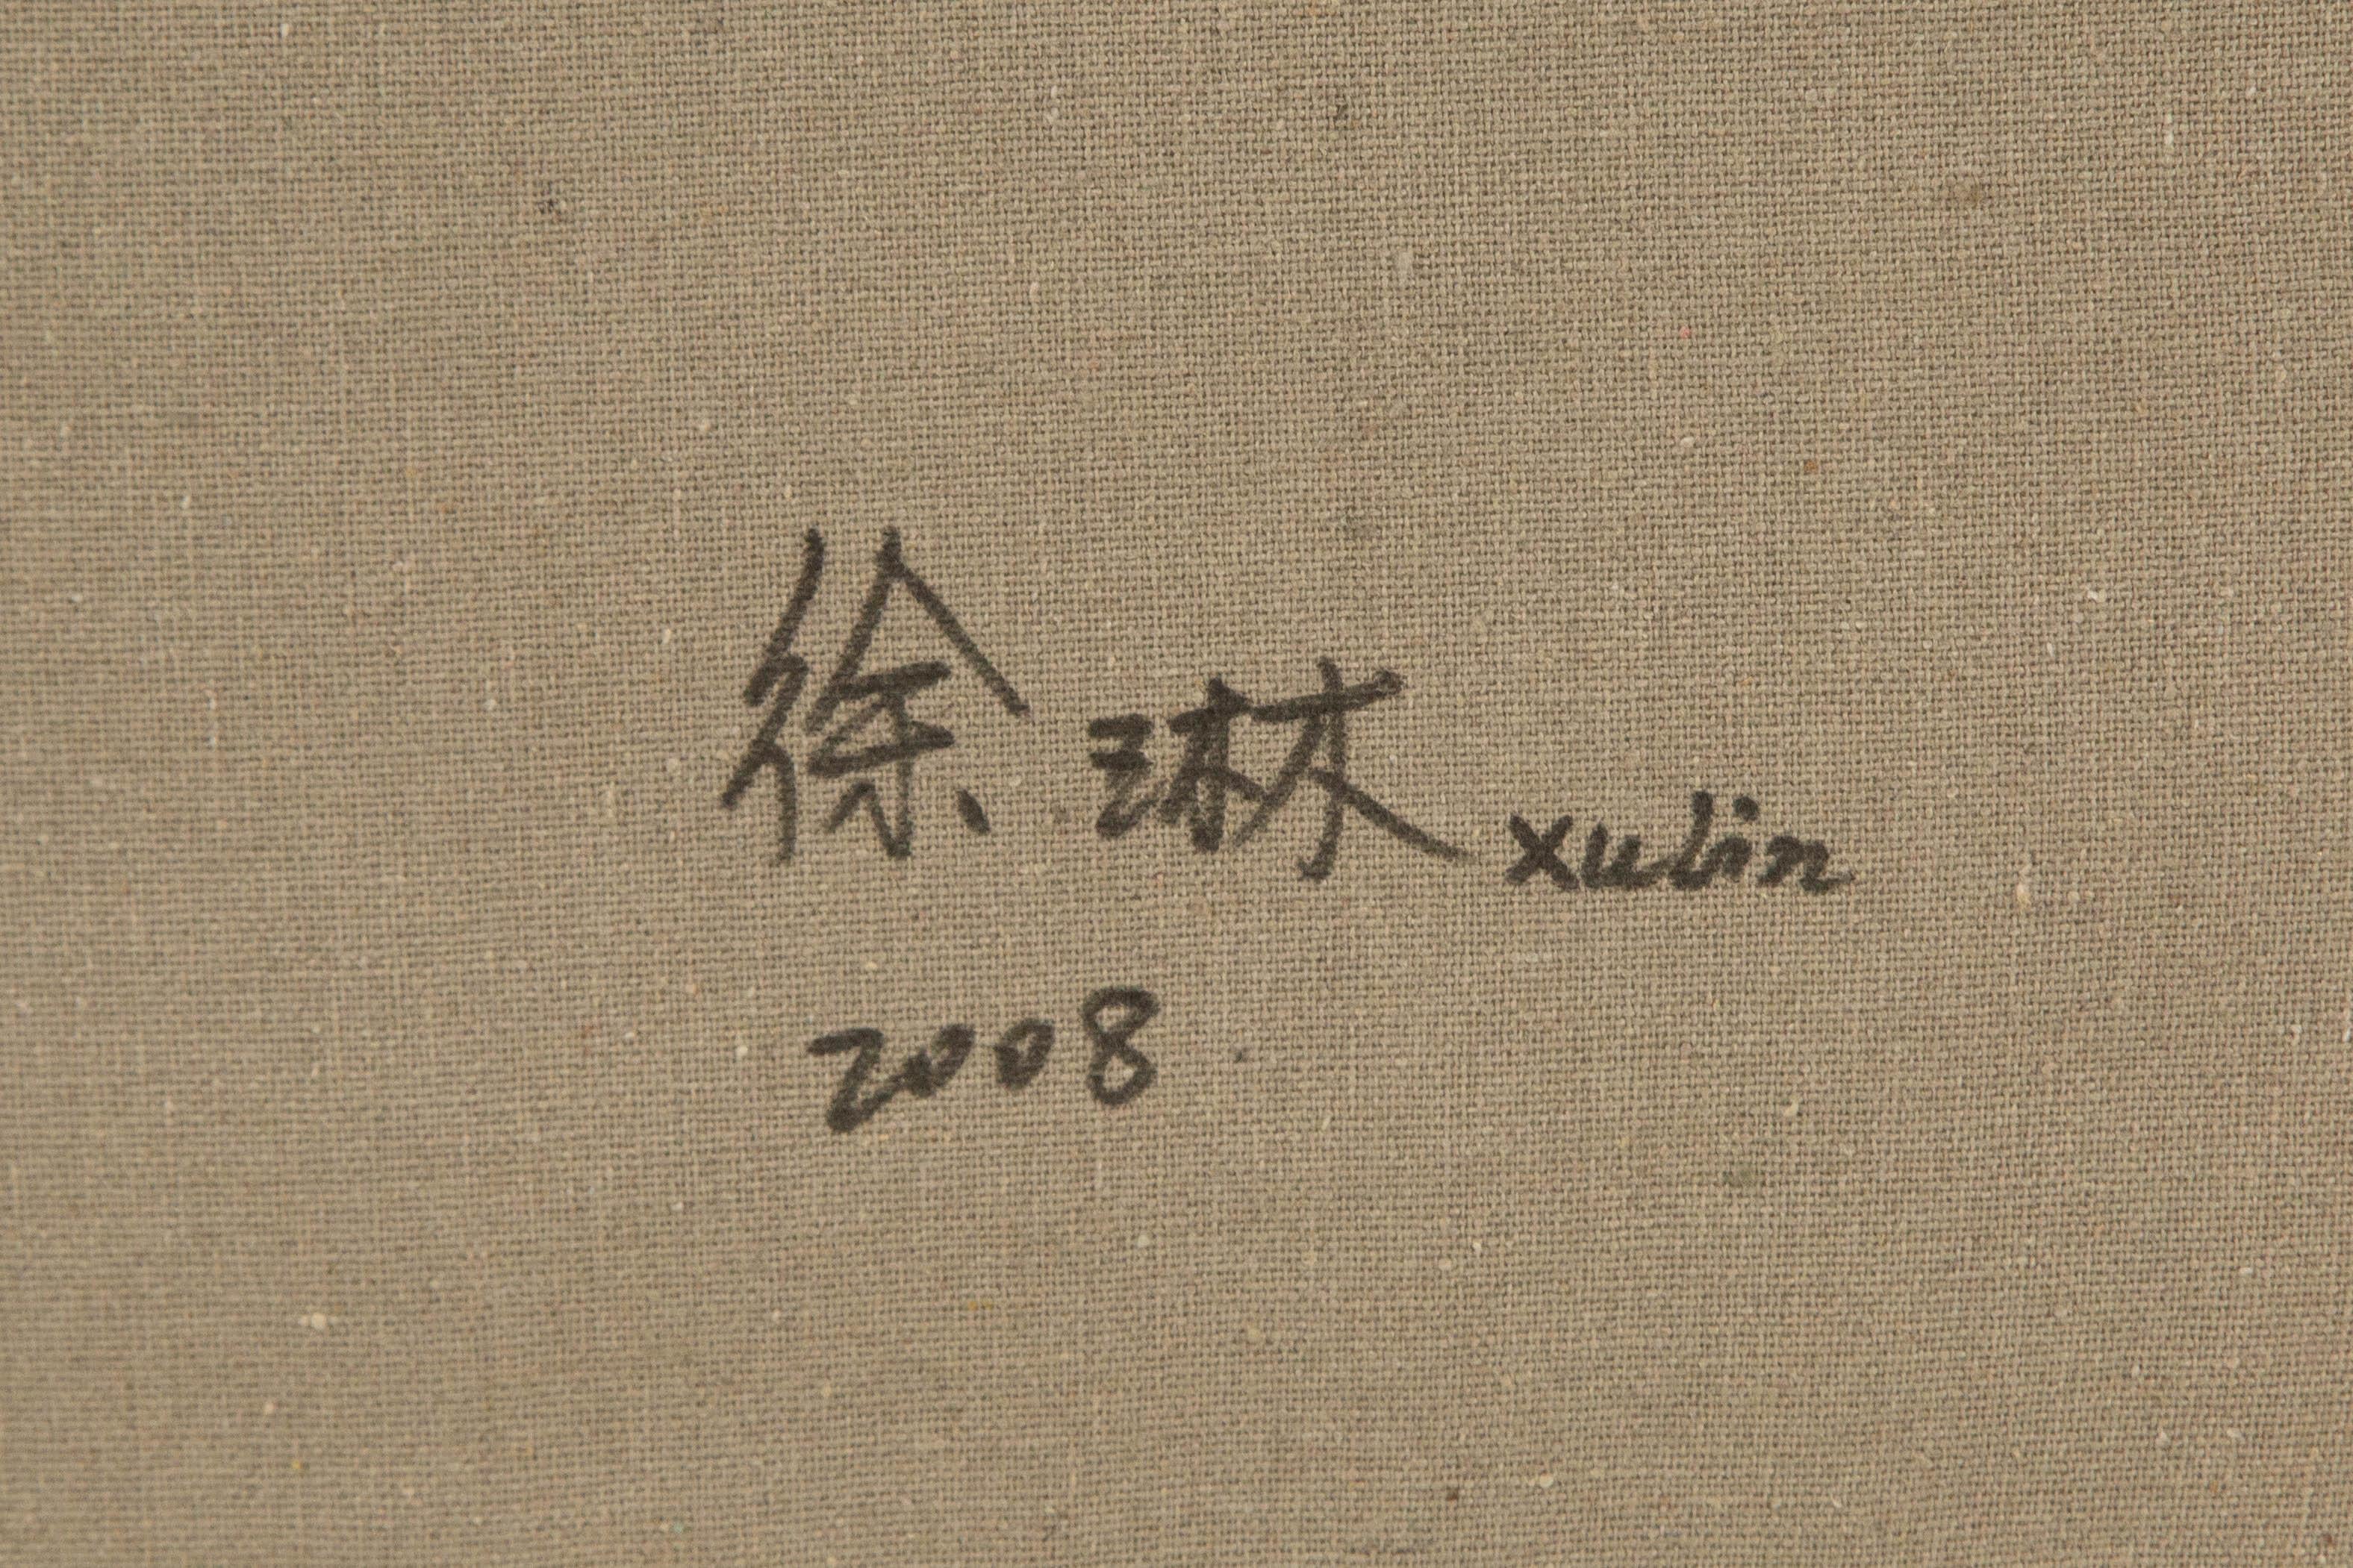 徐琳 xulin
2008